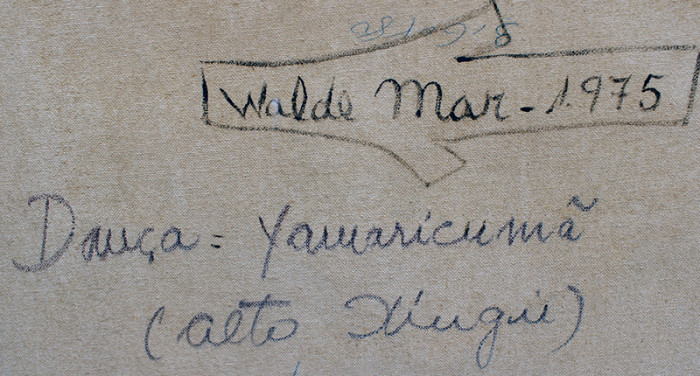 Walde Mar - 1.975
Dança = Yamaricumã
(alto Xingu)